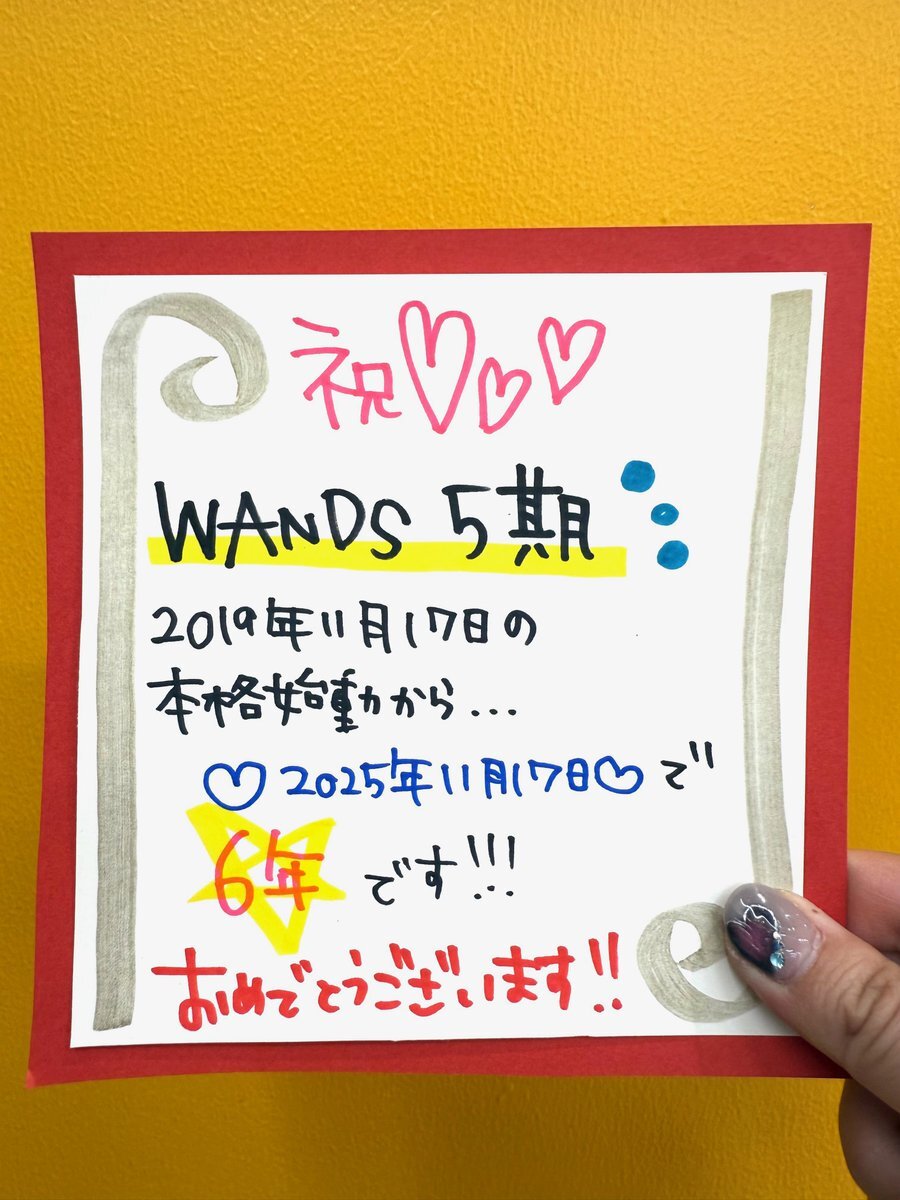 祝♡♡♡
WANDS 5期
2019年11月17日の
本格始動から...
♡2025年11月17日♡で
6年 です!!!
おめでとうございます!!